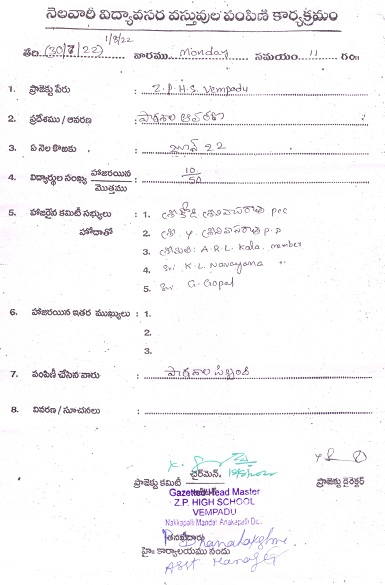 నెలవారీ విద్యావసర వస్తువుల పంపిణి కార్యక్రమం
1/8/22
తేది (30/7/22) వారము Monday సమయం 11 గం॥
1. ప్రాజెక్టు పేరు : Z.P.H.S. Vempadu
2. ప్రదేశము / ఆవరణ : పాఠశాల ఆవరణ
3. ఏ నెల కొఱకు : జూన్ 22
4. విద్యార్థుల సంఖ్య హాజరయిన / మొత్తము : 10/50
5. హాజరైన కమిటీ సభ్యులు : 1. శ్రీనివాసరావు PCC
హోదాతో 2. శ్రీ. Y. శ్రీనివాసరావు P.D
3. శ్రీమతి: A.R.L. Kala. member
4. Sri K.L. Narayana "
5. Sri G. Gopal
6. హాజరయిన ఇతర ముఖ్యులు : 1.
2.
3.
7. పంపిణీ చేసిన వారు : పాఠశాల సిబ్బంది
8. వివరణ / సూచనలు :
ప్రాజెక్టు కమిటీ చైర్‌మేన్. ప్రాజెక్టు డైరెక్టర్
Gazetted Head Master
Z.P. HIGH SCHOOL
VEMPADU
Nakkapalli Mandal Anakapalli Dt.
హై కార్యాలయము నందు
Dhanalakshmi
Asst Manager